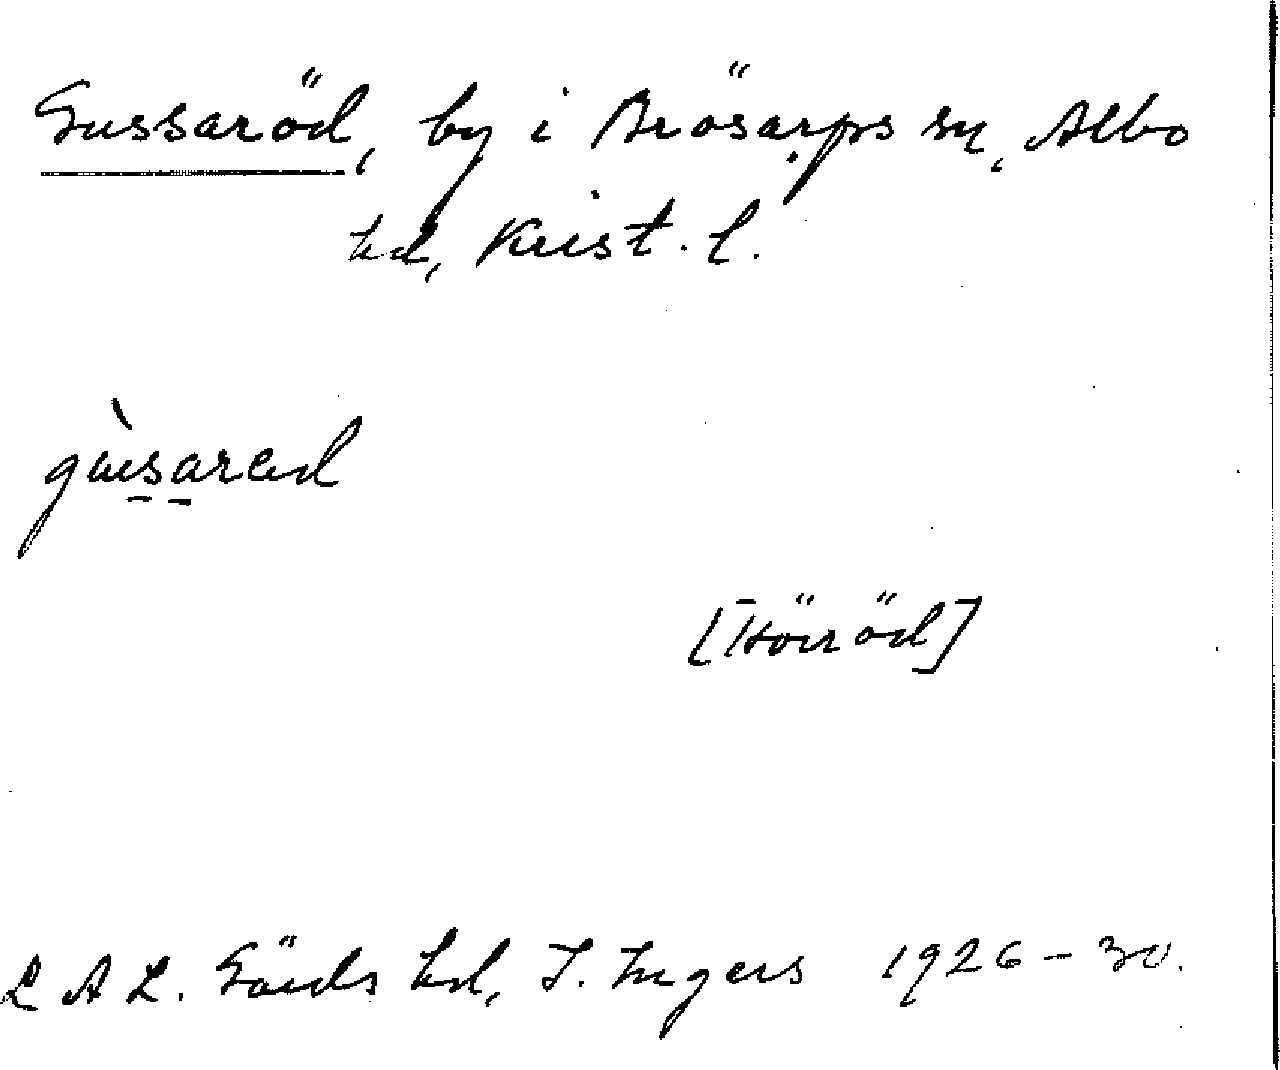 Gussaröd, by i Brösarps sn, Albo
hd, Krist. l.
gùsared
[Hörröd]
L A L. Gärds hd, I. Ingers 1926-30.